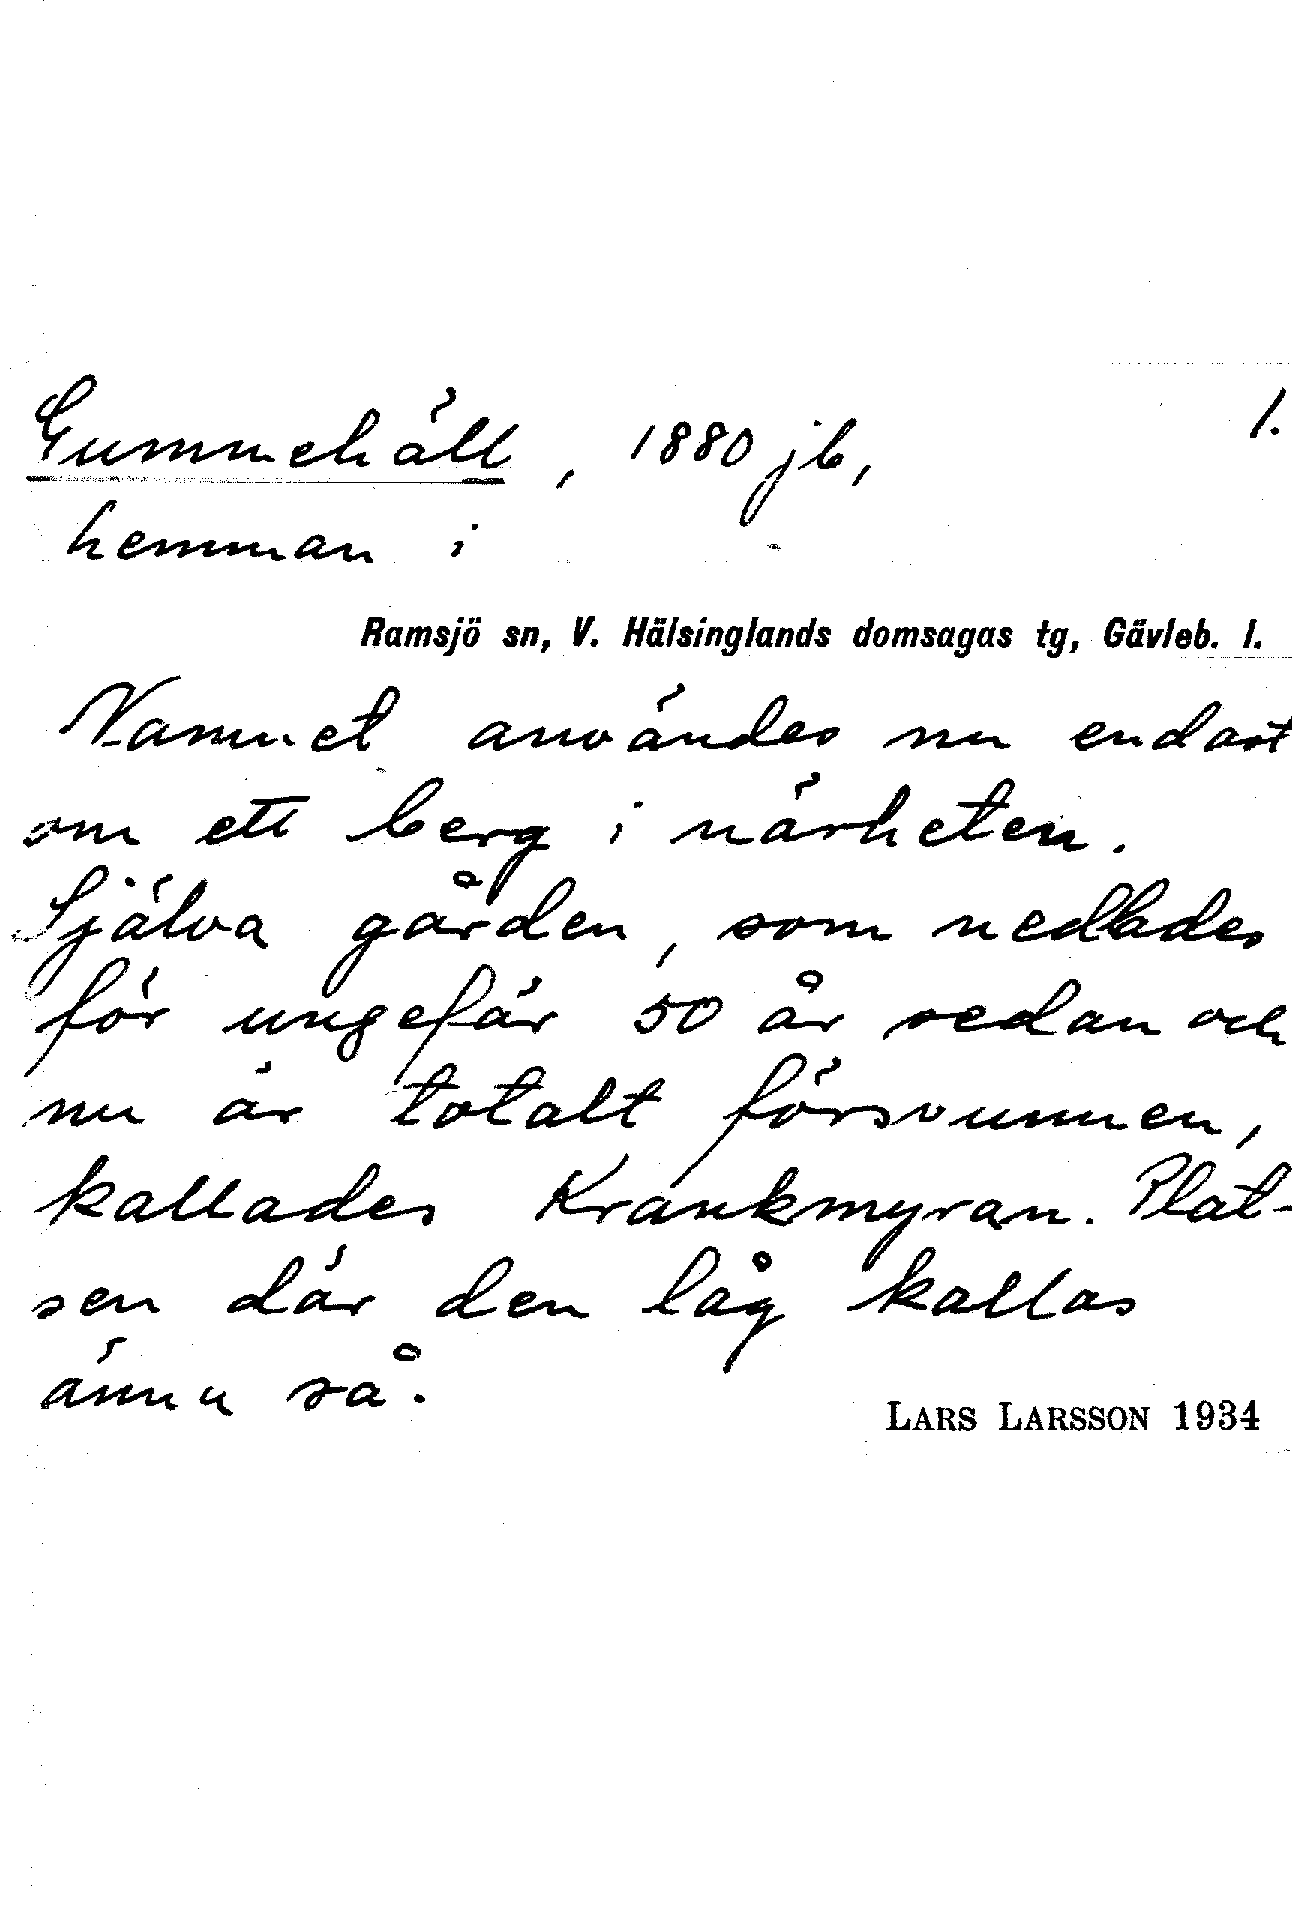 Gummehäll, 1880 jb, 1.
hemman i
Ramsjö sn, V. Hälsinglands domsagas tg, Gävleb. l.
Namnet användes nu endast
om ett berg i närheten.
Själva gården, som nedlades
för ungefär 50 år sedan och
nu är totalt försvunnen,
kallades Krankmyran. Plat-
sen där den låg kallas
ännu så.
LARS LARSSON 1934